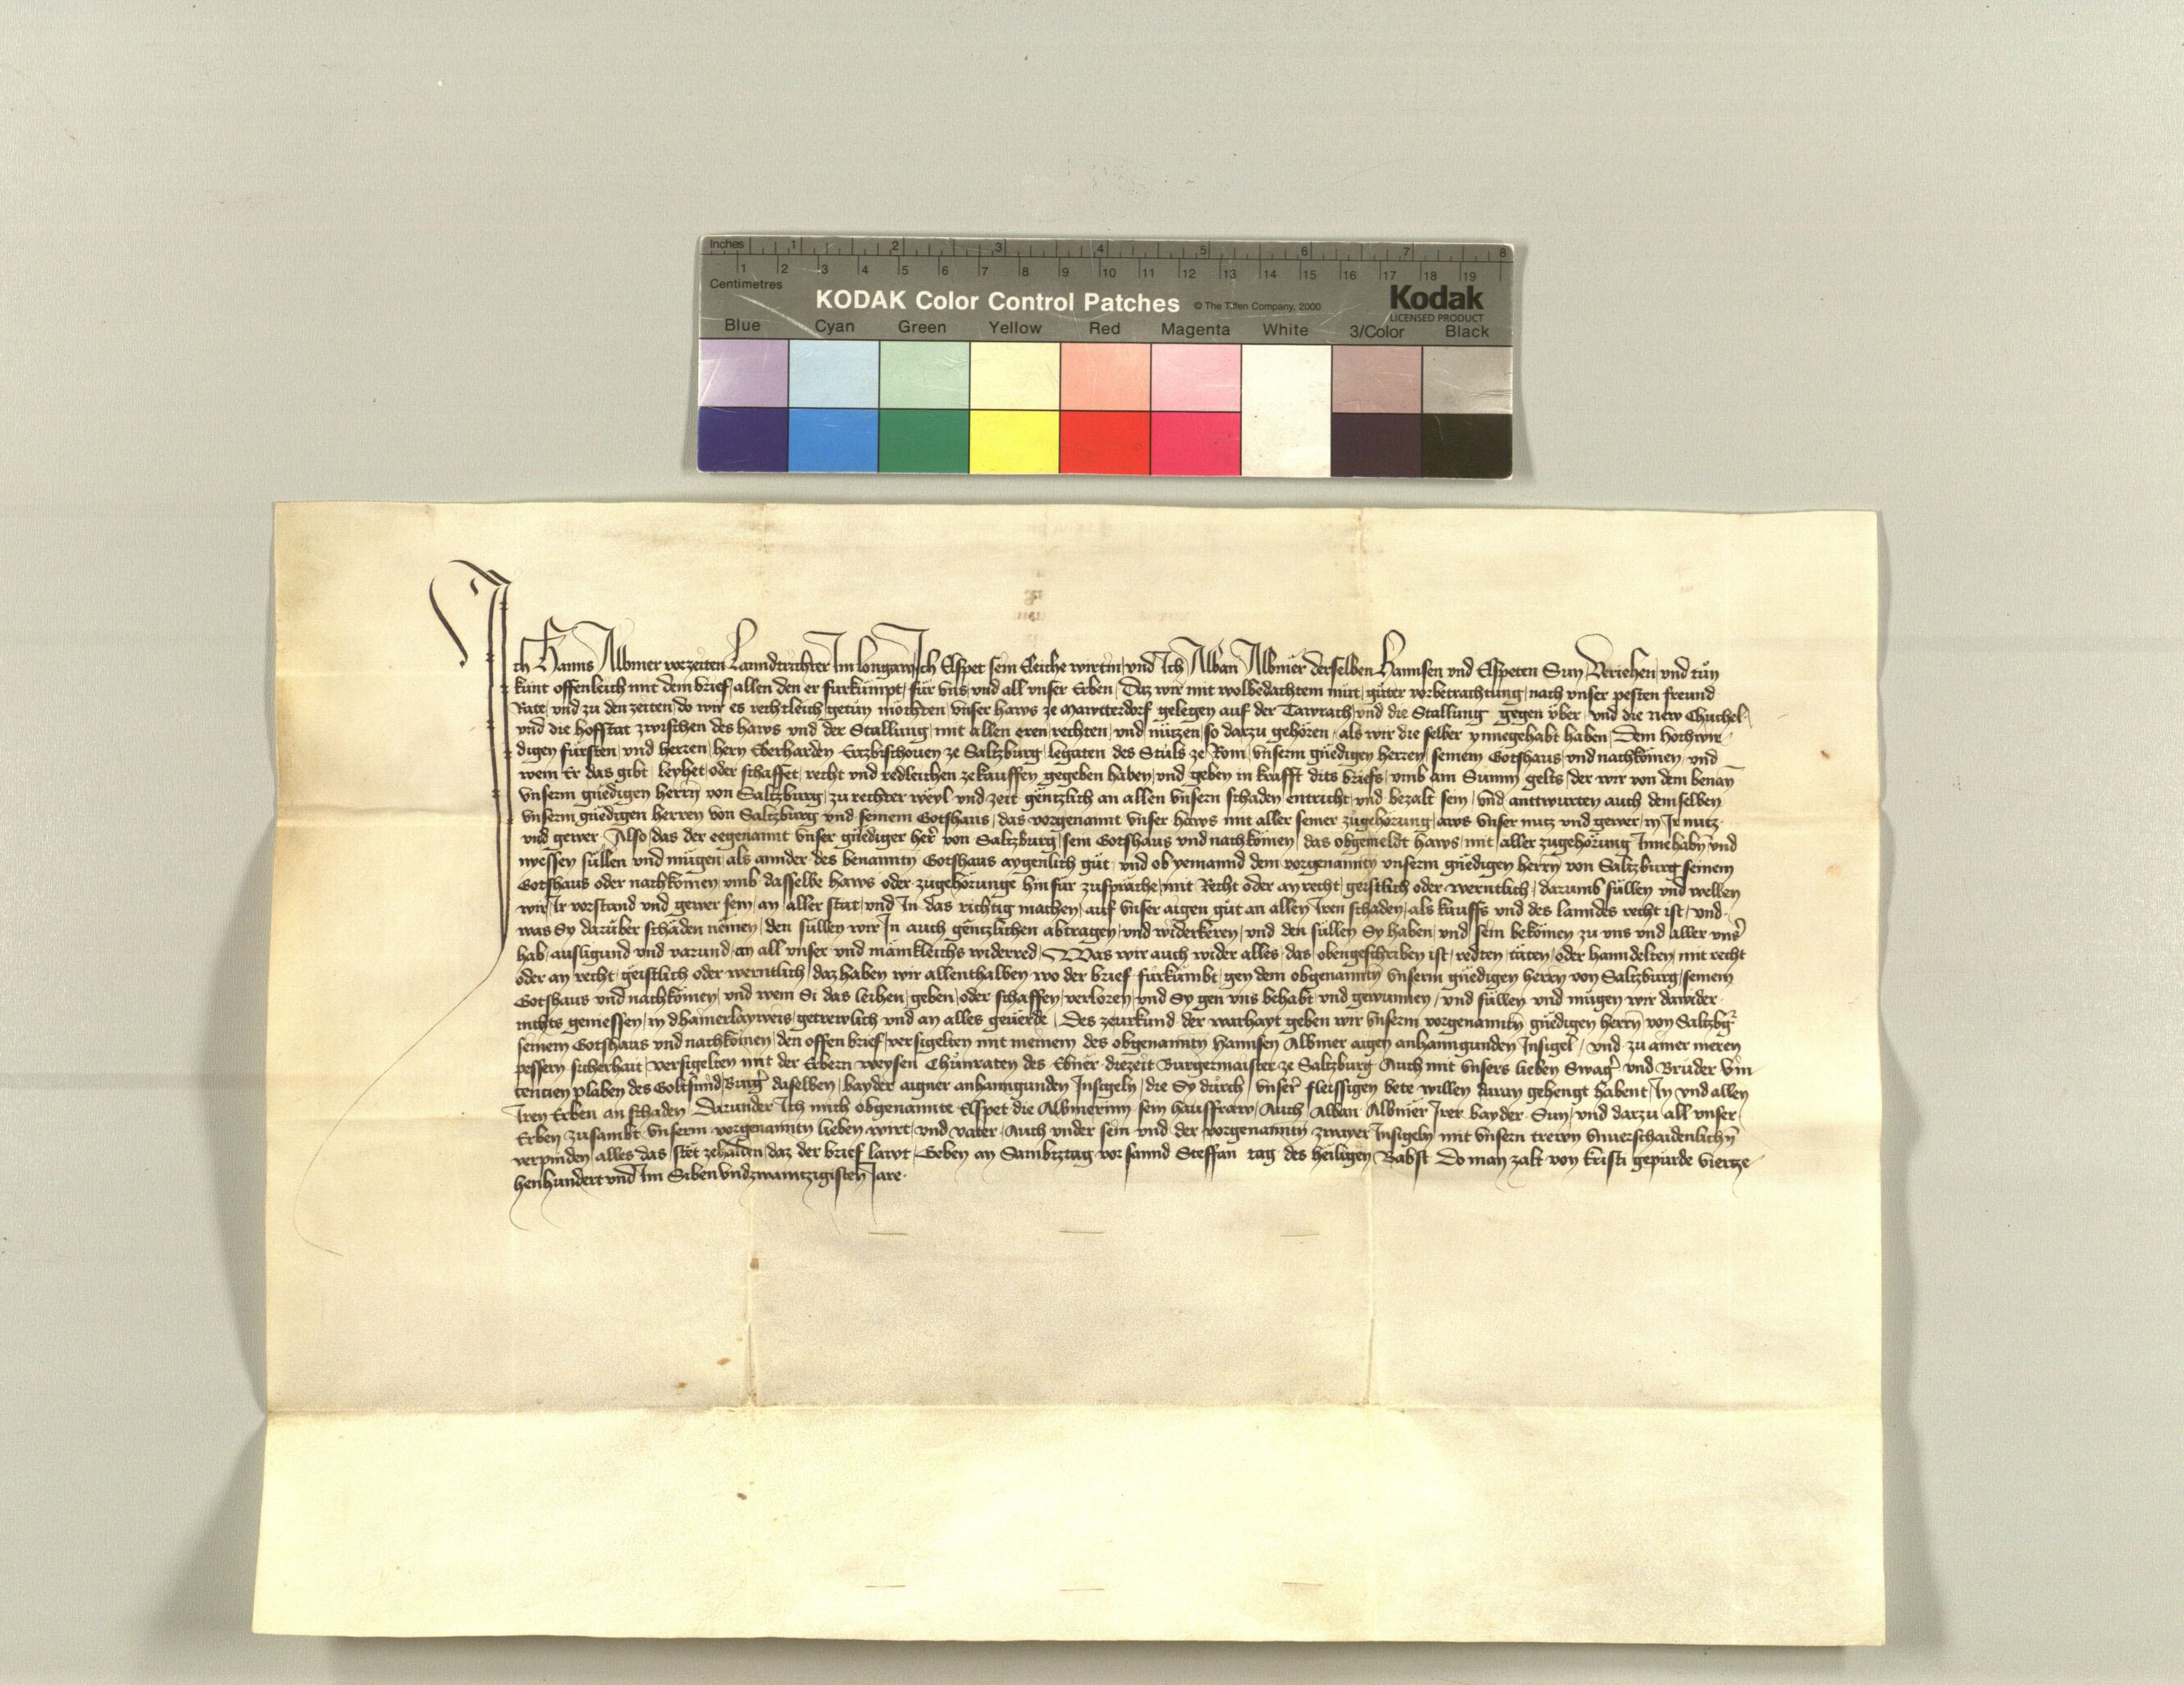 Inches 1 2 3 4 5 6 7 8
1 2 3 4 5 6 7 8 9 10 11 12 13 14 15 16 17 18 19
Centimetres
KODAK Color Control Patches © The Tiffen Company, 2000 Kodak
LICENSED PRODUCT
Blue Cyan Green Yellow Red Magenta White 3/Color Black
Ich Hanns Albmer vorzeiten Lanndtrichter Im longaw Ich Elspet sein Eleiche wirtin, und Ich Alban Albmer derselben Hannsen und Elspeten Sun, Veriehen, und tůn
kunt offenleich mit dem brief, allen den er furkumpt, für uns und all unser Erben, Daz wir mit wolbedachtem mut, guter vorbetrachtung, nach unser pesten freund
Rate, und zu den zeiten, do wir es rechtleich getun mochten, unser haws ze Mawtterdorf gelegen auf der Tawrach, und die Stallung gegen über, und die new Chuchel,
und die hofstat zwischen des haws und der Stallung, mit allen eren, rechten, und nützen, so darzu gehören, als wir die selber ynnegehabt haben, Dem hochwir-
digen fürsten, und herren, hern Eberharden Erzbischouen ze Saltzburg, legaten des Stuls ze Rom, unserm gnedigen herren, seinem Gotshaus, und nachkomen, und
wem Er das gibt, leyhet, oder schaffet, recht und redleichen zekauffen gegeben haben, und geben in krafft dits briefs, umb ain Summ gelts, der wir von dem benan̄
unserm gnedigen herrn von Saltzburg, zu rechter weyl und zeit gentzlich an allen unsern schaden entricht, und bezalt sein, und anttwurten auch demselben
unserm gnedigen herren von Saltzburg und seinem Gotshaus, das vorgenant unser haws mit aller seiner zugehorung, aws unser nutz und gewer, in Ir nutz
und gewer, Also, das der eegenannt unser gnediger her von Saltzburg, sein Gotshaus und nachkomen, das obgemeldt haws, mit aller zugehorung Innehabn̄ und
nyessen sullen und mugen, als annder des benanntn̄ Gotshaus aygenlich gut, und ob yemannd dem vorgenanntn̄ unserm gnedigen herrn̄ von Saltzburg seinem
Gotshaus oder nachkomen, umb dasselbe haws oder zugehorunge hinfür zuspräche, mit Recht oder an recht, geistlich oder werntlich, darumb sullen und wellen
wir, Ir vorstand und gewer sein, an aller stat, und In das richtig machen, auf unser aigen gut an allen Iren schaden, als kauffs und des lanndes recht ist, und
was Sy darüber schaden nemen, den sullen wir In auch gentzlichen abtragen, und widerkeren, und den sullen Sy haben, und sein bekomen zu uns und aller uns̄
hab, ausligund und varund, an all unser und mänikleichs widerred, Was wir auch wider alles, das obengeschriben ist, redten, täten, oder hanndelten, mit recht
oder an recht, geistlich oder werntlich, daz haben wir allenthalben, wo der brief fürkumbt, gen dem obgenanntn̄ unserm gnedigen herrn von Saltzburg, seinem
Gotshaus und nachkomen, und wem Si das leihen, geben, oder schaffen, verloren, und Sy gen uns behabt und gewunnen, und sullen und mugen wir dawider
nichts geniessen, in dhainerlayweis, getrewlich und an alles geuerde, Des zeurkund der warhayt geben wir unserm vorgenanntn̄ gnedigen herrn̄ von Saltzbḡ
seinem Gotshaus und nachkomen, den offen brief, versigelten mit meinem des obgenanntn Hannsen Albmer aigen anhanngunden Insigel, und zu ainer meren
pessern sicherhait, versigelten mit der Erbern weysen Chůnraten des Ebner diezeit Burgermaister ze Saltzburg Auch mit unsers lieben Swaḡ und Bruder Vin-
centien plaben des Goltsmid, Burḡ daselben, bayder aigner anhanngunden Insigeln, die Sy durch unser fleissigen bete willen daran gehengt habent, In und allen
Iren Erben an schaden, Darunder Ich mich obgenannte Elspet die Albmerinn sein hausfraw, Auch Alban Albmer Irer bayder Sun, und darzu all unser
Erben zusambt unserm vorgenanntn lieben wirt, und vater, Auch under sein und der vorgenanntn zwayer Insigeln mit unsern trewn Vnuerschaidenlichn̄
verpinden, alles das, stet zehalden, daz der brief lawt, Geben an Sambtztag vor sannd Steffan tag des heiligen Babst Do man zalt von Kristi gepurde Viertze-
henhundert und Im Siben undzwaintzigisten Jare.